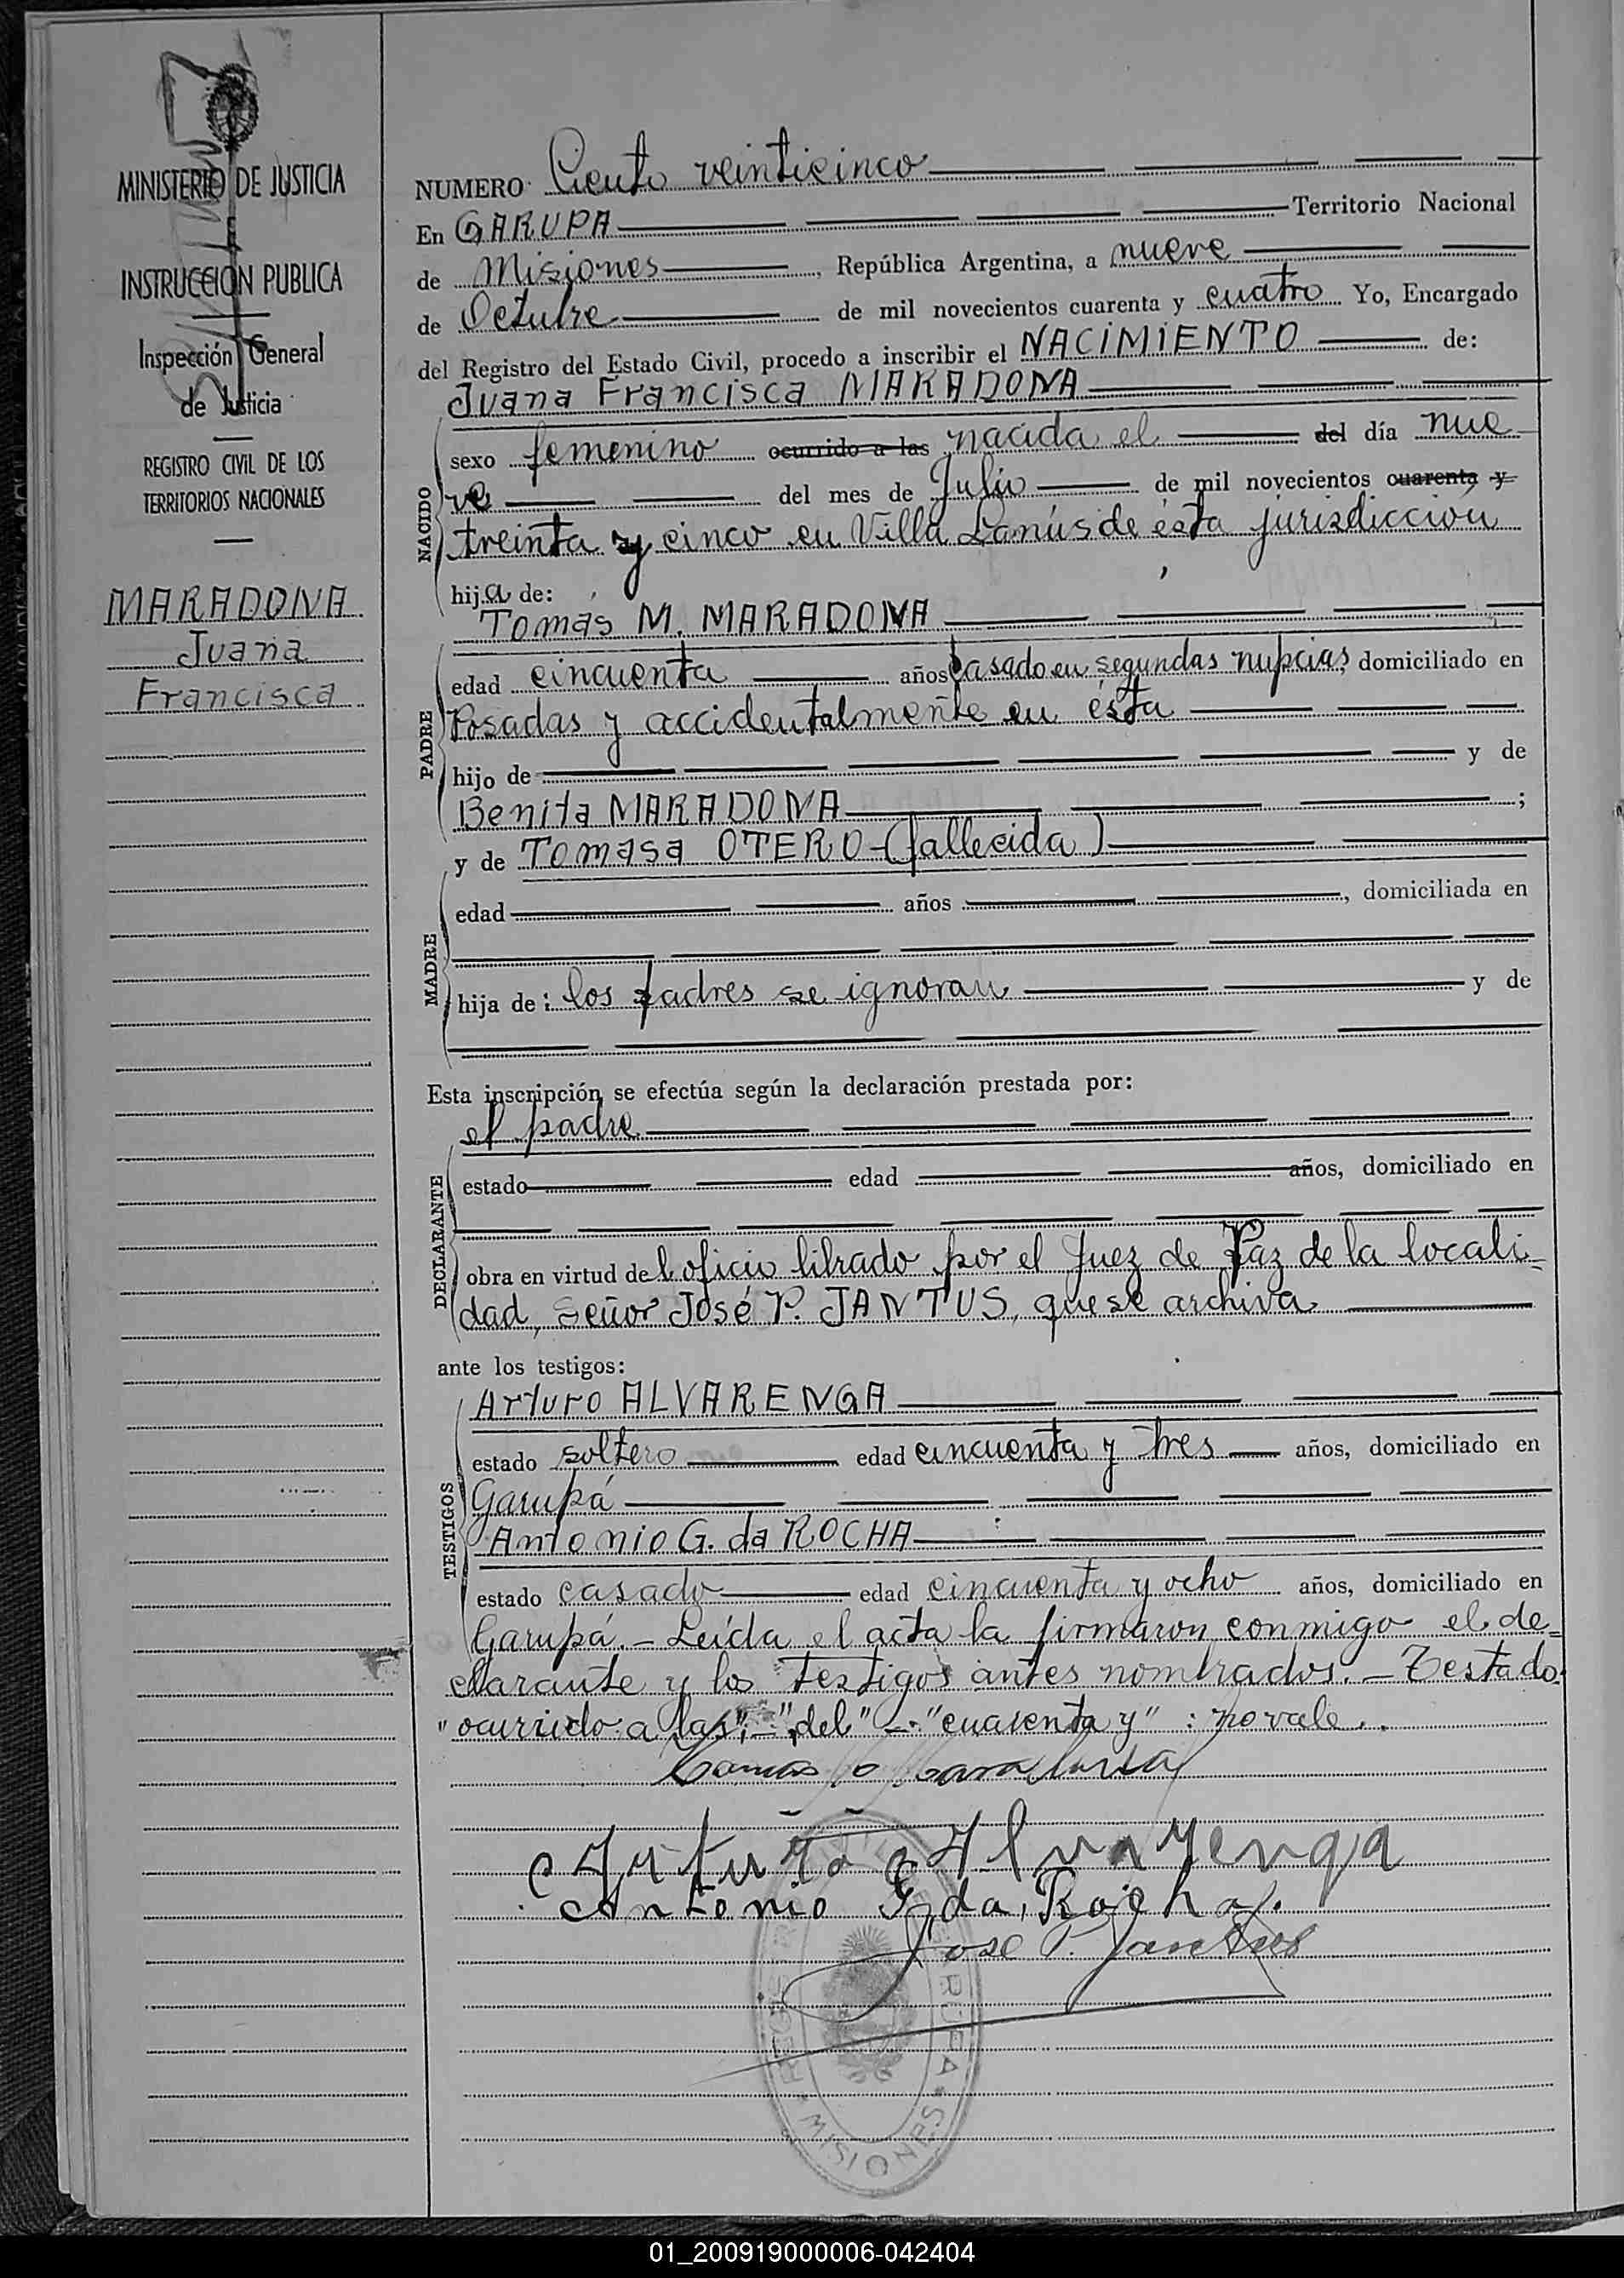 MINISTERIO DE JUSTICIA
INSTRUCCION PUBLICA
Inspección General
de Justicia
REGISTRO CIVIL DE LOS
TERRITORIOS NACIONALES
MARADONA
Juana
Francisca
NUMERO Ciento veinticinco
En GARUPA Territorio Nacional
de Misiones, República Argentina, a nueve
de Octubre de mil novecientos cuarenta y cuatro Yo, Encargado
del Registro del Estado Civil, procedo a inscribir el NACIMIENTO de:
Juana Francisca MARADONA
NACIDO
sexo femenino ocurrido a las nacida el del día nue
ve del mes de Julio de mil novecientos cuarenta y
treinta y cinco en Villa Lanús de ésta jurisdicción
hija de:
Tomás M. MARADONA
PADRE
edad cincuenta años casado en segundas nupcias domiciliado en
Posadas y accidentalmente en ésta
hijo de y de
Benita MARADONA;
y de Tomasa OTERO-(fallecida)
MADRE
edad años, domiciliada en
hija de: los padres se ignoran y de
Esta inscripción se efectúa según la declaración prestada por:
el padre
DECLARANTE
estado edad años, domiciliado en
obra en virtud del oficio librado por el Juez de Paz de la locali=
dad, Señor José P. JANTUS, que se archiva
ante los testigos:
TESTIGOS
Arturo ALVARENGA
estado soltero edad cincuenta y tres años, domiciliado en
Garupá
Antonio G. da ROCHA
estado casado edad cincuenta y ocho años, domiciliado en
Garupá.- Leída el acta la firmaron conmigo el de=
clarante y los testigos antes nombrados.- Testado:
"ocurrido a las".-"del"-."cuarenta y": no vale.
Tomás Maradona
Arturo Alvarenga
Antonio G. da Rocha.
Jose P. Jantus
MISIONES
01_200919000006-042404